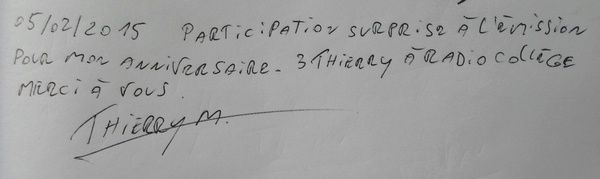 05/02/2015 PARTICIPATION SURPRISE À L'ÉMISSION
POUR MON ANNIVERSAIRE. 3 THIERRY À RADIO COLLÈGE
MERCI À VOUS.
THIERRY M.